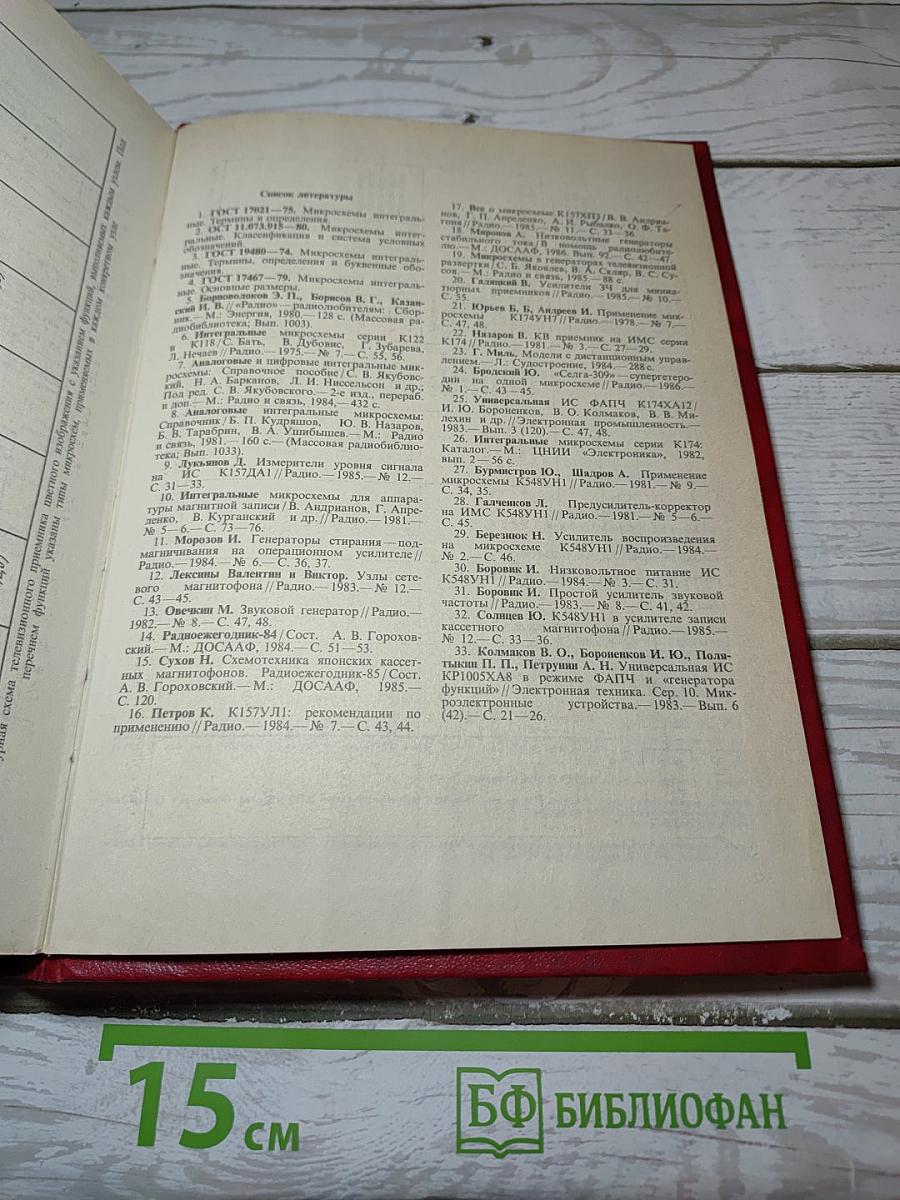 урная схема телевизионного приемника цветного изображения с указанием функций, выполняемых каждым узлом. Под
перечнем функций указаны типы микросхем, применяемых в каждом конкретном узле
Список литературы
1. ГОСТ 17021—75. Микросхемы интеграль-
ные. Термины и определения.
2. ОСТ 11.073.915—80. Микросхемы интег-
ральные. Классификация и система условных
обозначений.
3. ГОСТ 19480—74. Микросхемы интеграль-
ные. Термины, определения и буквенные обо-
значения.
4. ГОСТ 17467—79. Микросхемы интеграль-
ные. Основные размеры.
5. Борноволоков Э. П., Борисов В. Г., Казан-
ский И. В.//«Радио»—радиолюбителям: Сбор-
ник.—М.: Энергия, 1980.—128 с. (Массовая ра-
диобиблиотека; Вып. 1003).
6. Интегральные микросхемы серии К122
и К118/С. Бать, В. Дубовис, Г. Зубарева,
Л. Нечаев//Радио.—1975.—№ 7.—С. 55, 56.
7. Аналоговые и цифровые интегральные мик-
росхемы: Справочное пособие/С. В. Якубовс-
кий, Н. А. Барканов, Л. И. Ниссельсон и др.;
Под ред. С. В. Якубовского.—2-е изд., перераб.
и доп.—М.: Радио и связь, 1984,—432 с.
8. Аналоговые интегральные микросхемы:
Справочник/Б. П. Кудряшов, Ю. В. Назаров,
Б. В. Тарабрин, В. А. Ушибышев.—М.: Радио
и связь, 1981.—160 с.—(Массовая радиобиблио-
тека; Вып. 1033).
9. Лукьянов Д. Измерители уровня сигнала
на ИС К157ДА1//Радио.—1985.—№ 12.—
С. 31—33.
10. Интегральные микросхемы для аппара-
туры магнитной записи/В. Андрианов, Г. Апре-
ленко, В. Курганский и др.//Радио.—1981.—
№ 5—6.—С. 73—76.
11. Морозов И. Генераторы стирания—под-
магничивания на операционном усилителе//
Радио.—1984.—№ 6.—С. 36, 37.
12. Лексины Валентин и Виктор. Узлы сете-
вого магнитофона//Радио.—1983.—№ 12.—
С. 43—45.
13. Овечкин М. Звуковой генератор//Радио.—
1982.—№ 8.—С. 47, 48.
14. Радиоежегодник-84/Сост. А. В. Горохов-
ский.—М.: ДОСААФ, 1984.—С. 51—53.
15. Сухов Н. Схемотехника японских кассет-
ных магнитофонов. Радиоежегодник-85/Сост.
А. В. Гороховский.—М.: ДОСААФ, 1985.—
С. 120.
16. Петров К. К157УЛ1: рекомендации по
применению//Радио.—1984.—№ 7.—С. 43, 44.
17. Все о микросхеме К157ХП3/В. В. Андриа-
нов, Г. П. Апреленко, А. И. Рыбалко, О. Ф. Та-
гоня//Радио.—1985.—№ 11.—С. 33—36.
18. Миронов А. Низковольтные генераторы
стабильного тока/В помощь радиолюбите-
лю.—М.: ДОСААФ, 1986. Вып. 92.—С. 42—47.
19. Микросхемы в генераторах телевизионной
развертки/С. Б. Яковлев, В. А. Скляр, В. С. Су-
сов.—М.: Радио и связь, 1985.—88 с.
20. Галяцкий В. Усилители ЗЧ для миниа-
тюрных приемников//Радио.—1985.—№ 10.—
С. 55.
21. Юрьев Б. Б, Андреев И. Применение мик-
росхемы К174УН7//Радио.—1978.—№ 7.—
С. 47, 48.
22. Назаров В. КВ приемник на ИМС серии
К174//Радио.—1981.—№ 3.—С. 27—29.
23. Г. Миль. Модели с дистанционным управ-
лением.—Л.: Судостроение, 1984.—288 с.
24. Бродский Ю. «Селга-309»—супергетеро-
дин на одной микросхеме//Радио.—1986.—
№ 1.—С. 43—45.
25. Универсальная ИС ФАПЧ К174ХА12/
И. Ю. Бороненков, В. О. Колмаков, В. В. Ми-
лехин и др.//Электронная промышленность.—
1983.—Вып. 3 (120).—С. 47, 48.
26. Интегральные микросхемы серии К174:
Каталог.—М.: ЦНИИ «Электроника», 1982,
вып. 2—56 с.
27. Бурмистров Ю., Шадров А. Применение
микросхемы К548УН1//Радио.—1981.—№ 9.—
С. 34, 35.
28. Галченков Л. Предусилитель-корректор
на ИМС К548УН1//Радио.—1981.—№ 5—6.—
С. 45.
29. Березюк Н. Усилитель воспроизведения
на микросхеме К548УН1//Радио.—1984.—
№ 2.—С. 46.
30. Боровик И. Низковольтное питание ИС
К548УН1//Радио.—1984.—№ 3.—С. 31.
31. Боровик И. Простой усилитель звуковой
частоты//Радио.—1983.—№ 8.—С. 41, 42.
32. Солнцев Ю. К548УН1 в усилителе записи
кассетного магнитофона//Радио.—1985.—
№ 12.—С. 33—36.
33. Колмаков В. О., Бороненков И. Ю., Поля-
тыкин П. П., Петрунин А. Н. Универсальная ИС
КР1005ХА8 в режиме ФАПЧ и «генератора
функций»//Электронная техника. Сер. 10. Мик-
роэлектронные устройства.—1983.—Вып. 6
(42).—С. 21—26.
15 см
БФ БИБЛИОФАН